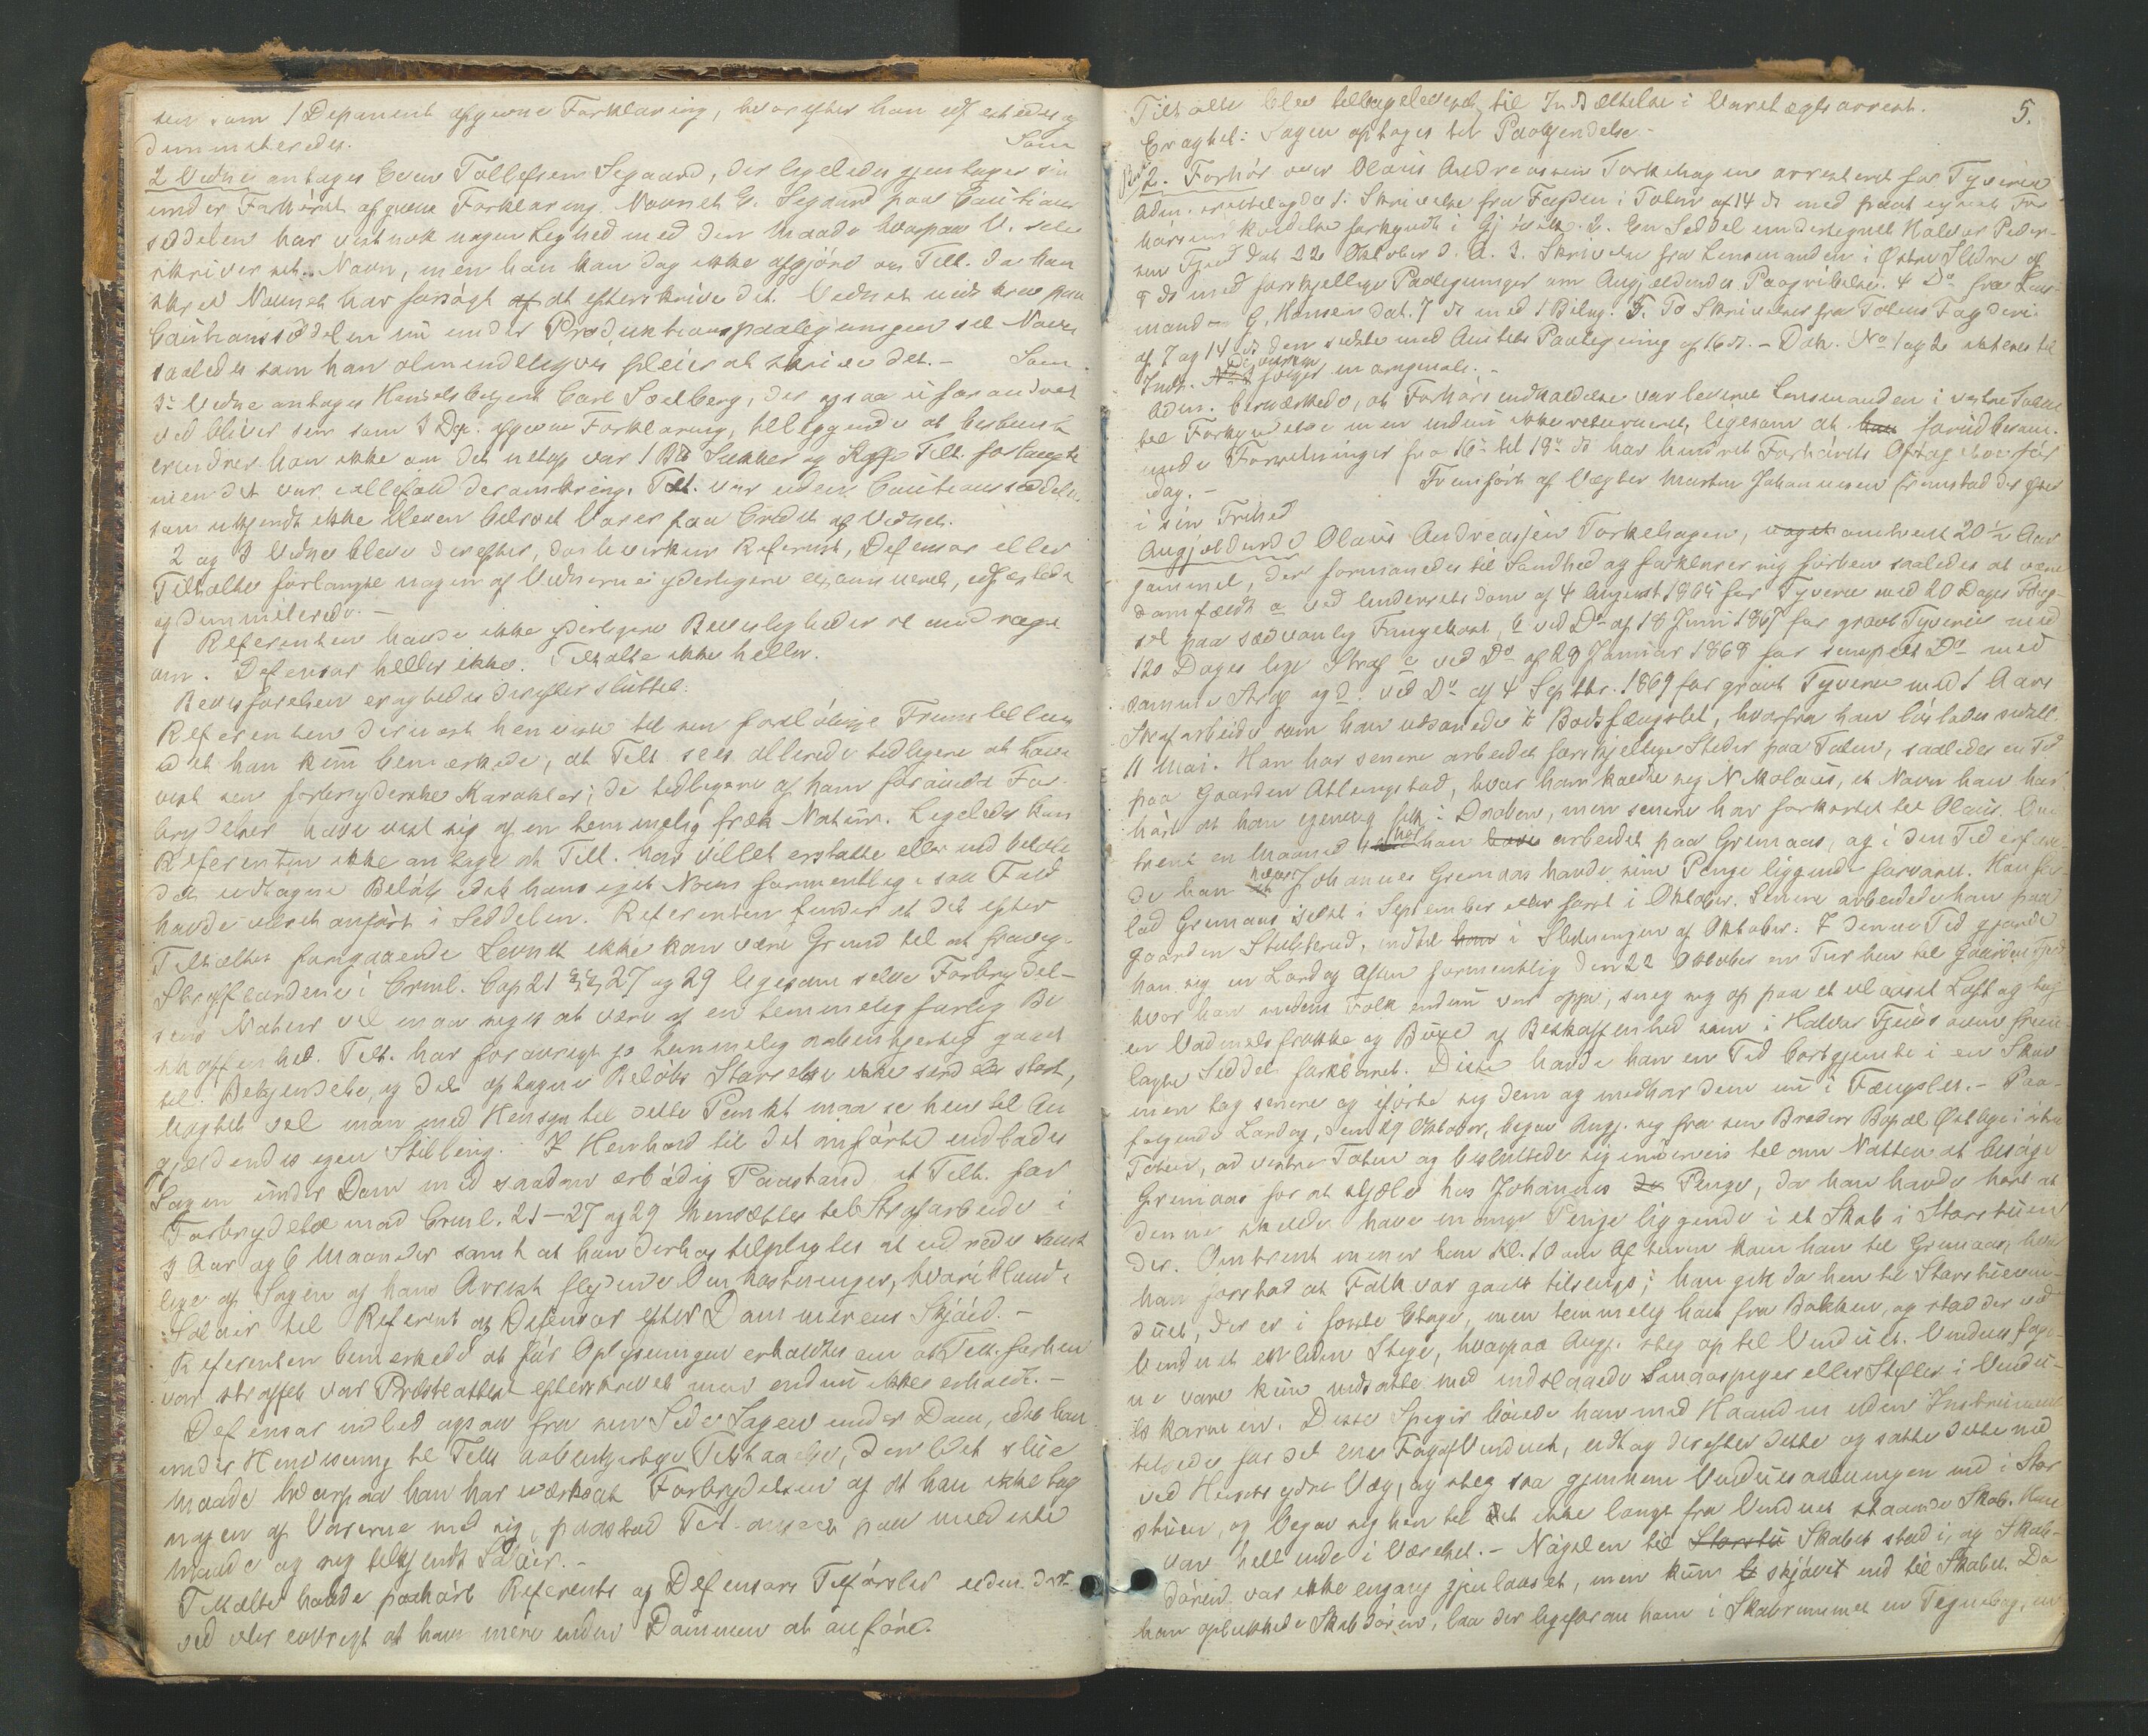 sen som 1 Deponent afgivne Forklaring, hvorefter han edfæstedes og
dimitteredes. Som
2 Vidne antages Even Tollefsen Segaard, der ligeledes gjentager sin
under Forhöret afgivne Forklaring. Navnet E. Segaard paa Cautions
seddelen har vistnok nogen Lighed med den Maade hvorpaa V. selv
skriver sit Navn, men han kan dog ikke afgjöre om Tilt. da han
skrev Navnet har forsögt at efterskrive det. Vidnet
Cautionsseddelen nu under Produktionspaategningen sit Navn
saaledes som han almindeligvis pleier at skrive det. – Som
3die Vidne antages Handelsbetjent Carl Soelberg, der ogsaa uforandret
vedbliver sin som 3 Dep. afgivne Forklaring, tillæggende at bestemt
erindrer han ikke om det netop var 1 Sukker og Kaffe Tilt. forlangte
men det var ialfald deromkring. Tilt. var uden Cautionsseddelen
som ukjendt ikke bleven betroet Varer paa Credit af Vidnet.
2 og 3 Vidne bleve derefter, da hverken Referent, Defensor eller
Tiltalte forlangte nogen af Vidnerne yderligere examineret, edfæstede
og dimitterede. –
Referenten havde ikke yderligere Bevisligheder at
om. Defensor heller ikke. Tiltalte ikke heller.
Bevisförelsen eragtedes derefter sluttet.
Referenten dernæst henviste til sin foreløbige Fremstilling
idet han kun bemærkede, at Tilt. sees allerede tidligere at have
vist sin forbryderske Karakter; de tidligere af ham forövede For-
brydelser have vist sig af en temmelig fræk Natur. Ligeledes kan
Referenten ikke antage at Tilt. har villet erstatte eller
det udtagne Belöb idet hans eget Navn formentlig i saa Fald
havde været anfört i Seddelen. Referenten finder at det efter
Tiltaltes foregaaende Levnet ikke kan være Grund til at fravige
Straffebudene i Crml. Cap 21 §§ 27 og 29 ligesom selve Forbrydel-
sens Natur vel maa siges at være af en temmelig farlig Be
skaffenhed. Tilt. har forövrigt jo temmelig aabenhjertig gaaet
til Bekjendelse, og det optagne Belöbs Störrelse ikke stort,
hvorhos vel man med Hensyn til dette Punkt maa se hen til An
gjældendes egen Stilling. I Henhold til det anförte indlades
Sagen under Dom med saadan ærbödig Paastand at Tilt. for
Forbrydelse mod Crml. 21–27 og 29 hensættes til Strafarbeide i
3 Aar og 6 Maaneder samt at han derhos tilpligtes at udrede samt
lige af Sagen og hans Arrest flydende Omkostninger, hvoriblandt
Salair til Referent og Defensor efter Dommerens Skjön. –
Referenten bemerkede at för Oplysningen erholdtes om at Tilt. forhen
var straffet var Præsteattest efterskrevet men endnu ikke erholdt. –
Defensor indlod ogsaa fra sin Side Sagen under Dom, idet han
under Henvisning til Tilts aabenhjertige Tilstaaelse, den
Maade hvorpaa han har iværksat Forbrydelsen og at han ikke tog
nogen af Varerne med sig, paastod Tilt. anseet paa mildeste
Maade og sig tilkjendt Salair. –
Tiltalte havde paahört Referents og Defensors Tilförsler uden
ved eller övrigt at have mere under Dommen at anföre.
5.
Tiltalte blev tilbageleveret til Indsættelse i Varetægtsarrest.
Eragtet: Sagen optages til Paakjendelse. –
2. Forhör over Olaus Andreassen Torkehagen arresteret for Tyverier
Adm. fremlagde 1. Skrivelse fra Fogden i Toten af 14 ds med paategnet For
hörsindkaldelse forkyndt i Gjövik. 2. En Seddel undertegnet Halvor Peder-
sen Fjeld dat. 22 Oktober d. A. 3. Skrivelse fra Lensmanden i Østre Slidre af
9 ds med forskjellige Paategninger om Angjældendes Paagribelse. 4 Do fra Lens-
mand G. Hansen dat. 7 ds med 1 Bilag. 5. To Skrivelser fra Totens Fogderi
af 7 og 14 ds den sidste med Amtets Paategning af 16 ds. – Dok. No 1 og 2 akteres til
Indt. De övrige fölger in originali. –
Adm. bemærkede, at Forhörsindkaldelse var leveret Lensmanden i vestre Toten
til Forkyndelse men endnu ikke returneret, ligesom at forudberam-
mede Forretninger fra 16de til 19de ds har hindret Forhörets Optag över för
idag. – Fremfört af Vægter Martin Johannesen Grimstad derefter
i sin Frihed
Angjældende Olaus Andreassen Torkehagen, omtrent 20 1/2 Aar
gammel, der formanedes til Sandhed og forklarer sig forhen saaledes at være
domfældt a ved Underretsdom af 4 August 1865 for Tyveri med 20 Dages Fæng-
sel paa sædvanlig Fangekost, b ved Do af 18 Juni 1867 for grovt Tyveri med
120 Dages lige Straf c ved Do af 28 Januar 1868 for simpelt Do med
samme Straf og d. ved Do af 4 Septbr. 1869 for grovt Tyveri med 1 Aars
Strafarbeide som han udsonede i Bodsfængslet, hvorfra han löslodes sidstl.
11 Mai. Han har senere arbeidet forskjellige Steder paa Toten, saaledes en Tid
paa Gaarden Atlungstad, hvor han kaldte sig Nikolaus, et Navn han har
hört at han egentlig fik i Daaben, men senere har forkortet til Olaus. Om
trent en Maaned har han arbeidet paa Grimaas, og i den Tid erfare-
de han hvor Johannes Grimaas havde sine Penge liggende forvaret. Han for
lod Grimaas sidst i September eller först i Oktober. Senere arbeidede han paa
Gaarden Stubberud, indtil i Slutningen af Oktober. I denne Tid gjorde
han sig en Lördag Aften formentlig den 22 Oktober en Tur hen til Gaarden Fjeld
hvor han medens Folk endnu var oppe, sneg sig op paa et ulaaset Loft og tog
en Vadmelsfrakke og Buxe af Beskaffenhed som i Halvor Fjelds oven frem
lagte Seddel forklaret. Disse havde han en Tid bortgjemte i en Skov
men tog senere og iförte sig dem og medhar dem nu i Fængslet. – Paa-
fölgende Lördag, den 29 Oktober, begav Angj. sig fra sin Broders Bopæl Østlige i östre
Toten, ad vestre Toten og besluttede sig underveis til om Natten at besöge
Grimaas for at stjæle hos Johannes Penge, da han havde hört at
denne skulde have mange Penge liggende i et Skab i Storstuen
der. Omtrent mener han Kl. 10 om Aftenen kom han til Grimaas, hvor
han forstod at Folk var gaaet tilsengs; han gik da hen til Storstuevin-
duet, der er i förste Etage, men temmelig höit fra Bakken, og stod der ved
Vinduet en liden Stige, hvorpaa Angj. steg op til Vinduet. Vinduesfage-
ne vare kun indsatte med indslaaede Smaaspiger eller Stifter i Vindu-
eskarmen. Disse Spiger böiede han med Haanden uden Instrument
tilside for det ene Fag af Vinduet, udtog derefter dette og satte dette ned
ved Husets ydre Væg, og steg saa gjennem Vinduesaabningen ind i Stor
stuen, og begav sig hen til et ikke langt fra Vinduet staaende Skab. Han
var helt ude i Værelset. – Nöglen til Skabet stod i, og Skab-
dören var ikke engang gjenlaaset, men kun skjövet ind til Skabet. Da
han oplukkede Skabdören, laa der ligeforan ham i Skabrummet en Tegnebog, en